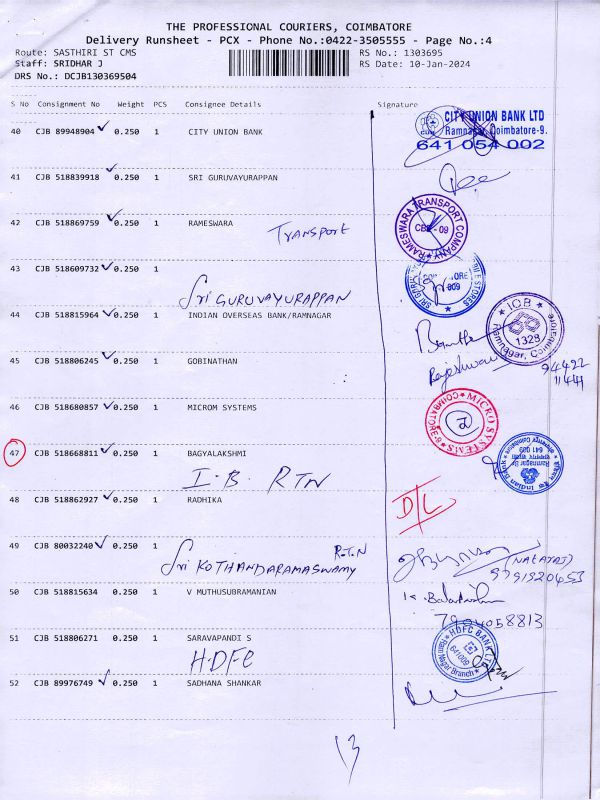 THE PROFESSIONAL COURIERS, COIMBATORE
Delivery Runsheet - PCX - Phone No.:0422-3505555 - Page No.:4
Route: SASTHIRI ST CMS
RS No.: 1303695
Staff: SRIDHAR J
RS Date: 10-Jan-2024
DRS No.: DCJB130369504
S No Consignment No Weight PCS Consignee Details Signature
40 CJB 89948904 0.250 1 CITY UNION BANK
CITY UNION BANK LTD
Ramnagar, Coimbatore-9.
641 054 002
41 CJB 518839918 0.250 1 SRI GURUVAYURAPPAN
42 CJB 518869759 0.250 1 RAMESWARA
TRANSPORT
RAMESWARA TRANSPORT COMPANY
43 CJB 518609732 0.250 1
Sri GURUVAYURAPPAN
44 CJB 518815964 0.250 1 INDIAN OVERSEAS BANK/RAMNAGAR
IOB
1328
Ramnagar, Coimbatore
45 CJB 518806245 0.250 1 GOBINATHAN
Rajeshwari
94422
11441
46 CJB 518680857 0.250 1 MICROM SYSTEMS
MICRO SYSTEMS
COIMBATORE-9
2
47 CJB 518668811 0.250 1 BAGYALAKSHMI
I.B. RTN
48 CJB 518862927 0.250 1 RADHIKA
D/L
49 CJB 80032240 0.250 1
Sri KOTHANDARAMASWAMY
R.T.N
(NATARAJ)
50 CJB 518815634 0.250 1 V MUTHUSUBRAMANIAN
7904058813
51 CJB 518806271 0.250 1 SARAVAPANDI S
HDFC
HDFC BANK LTD
641009
Ram Nagar Branch
52 CJB 89976749 0.250 1 SADHANA SHANKAR
13